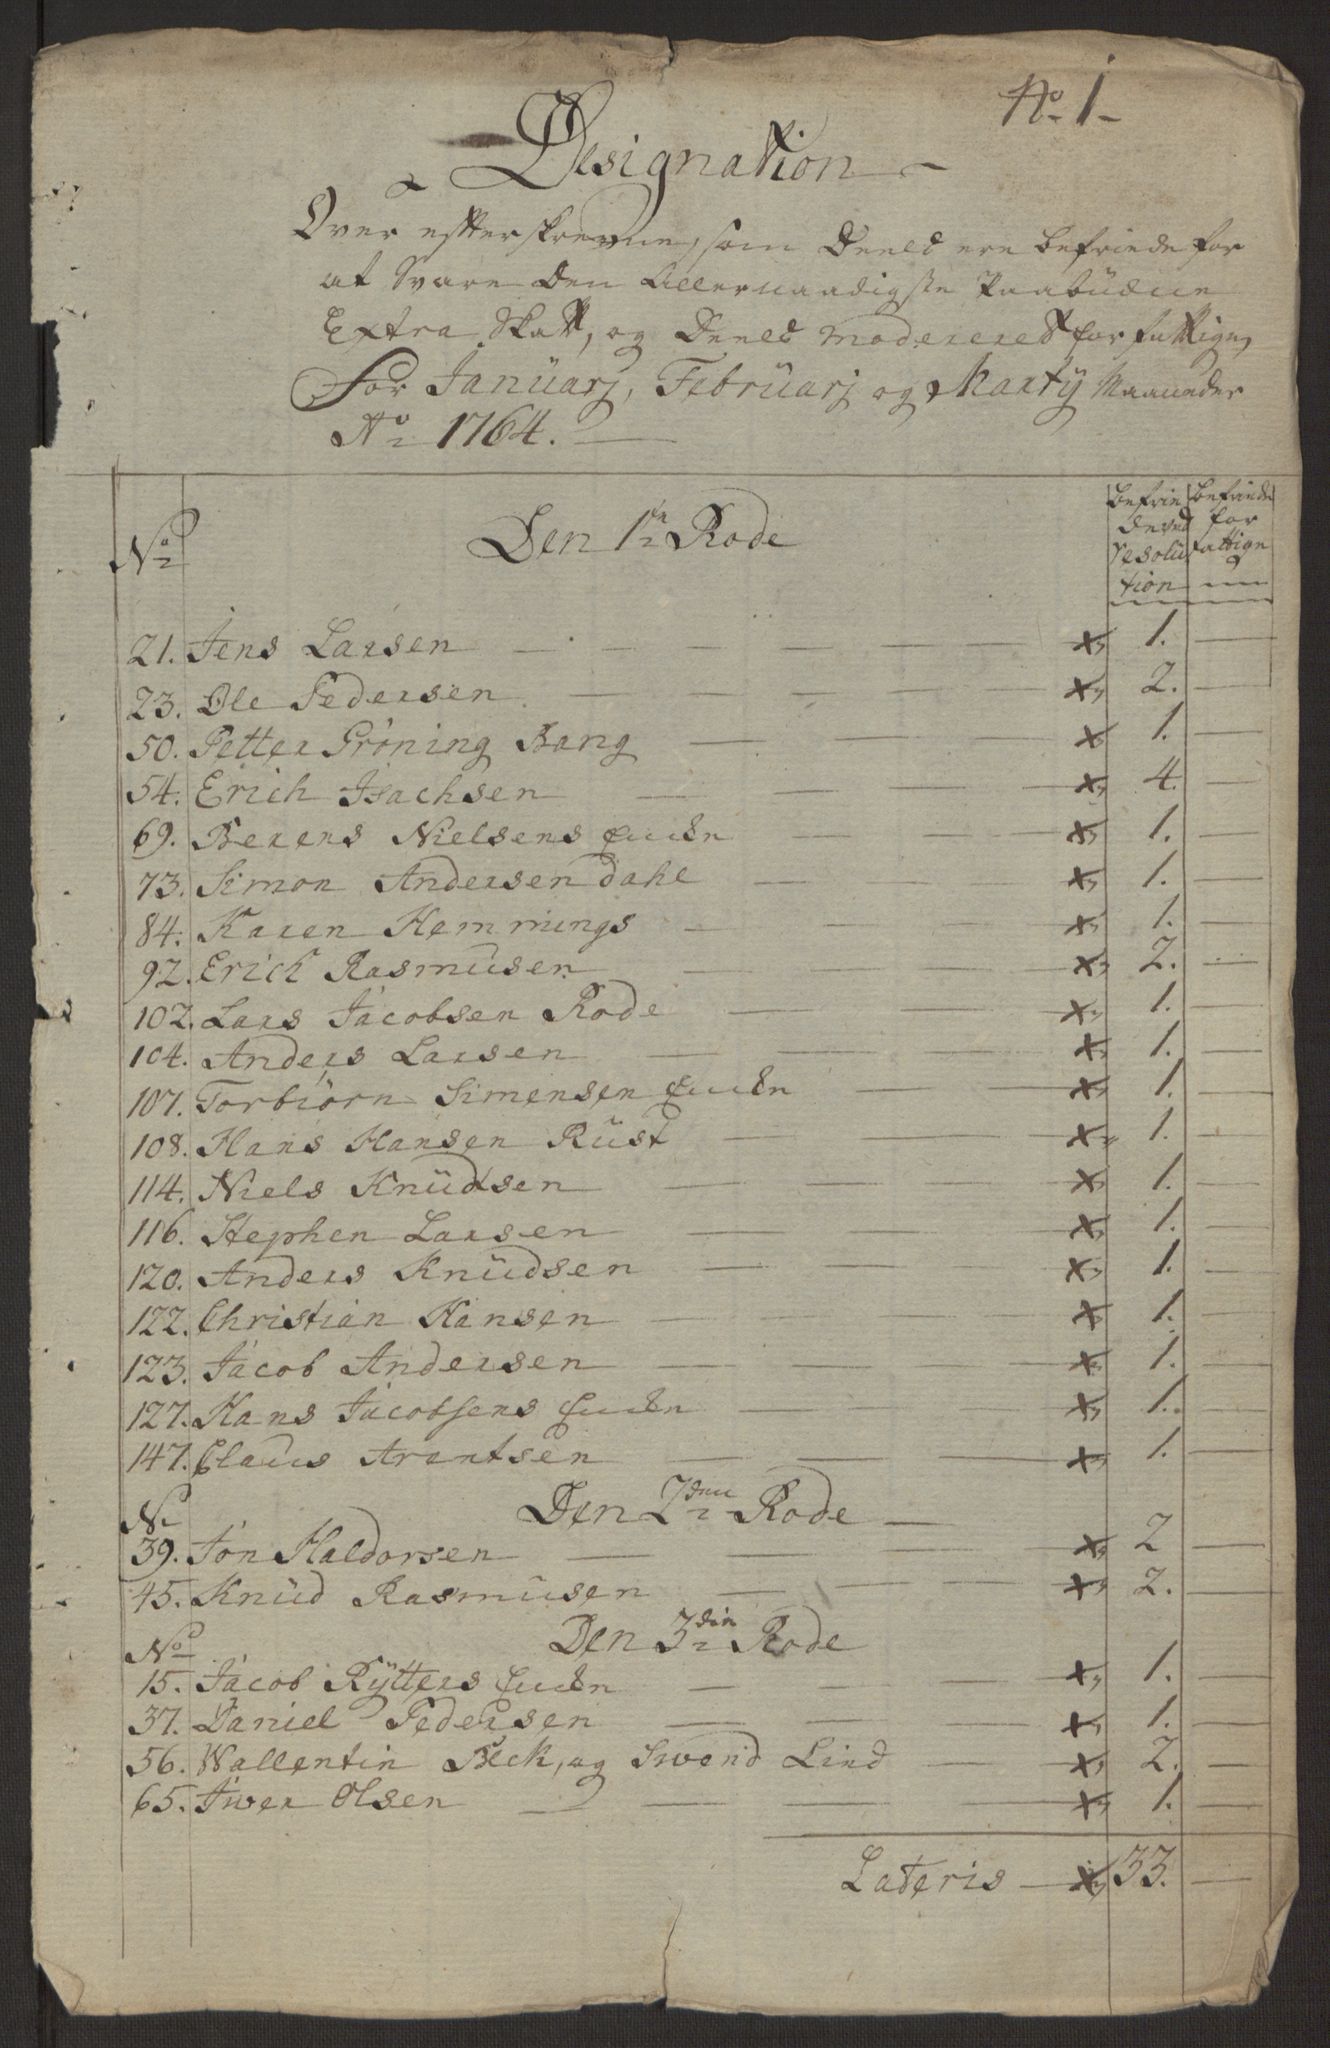 No 1
Designation
Over efterskrevne, som Deels ere befriede for
at Svare den Allernaadigste Paabüdne
Extra Skatt, og Deels modereret for fattige,
For Januarj, Februarj og Marty Maaneder
Ao 1764.
No Den 1te Rode befriede ved resolution befriede for fattige
21. Jens Larsen x 1.
23. Ole Pedersen x 2.
50. Petter Grøning Bang x 1.
54. Erich Isachsen x 4.
69. Berens Nielsens Encke x 1.
73. Simon Andersen dahl x 1.
84. Karen Hemmings x 1.
92. Erich Rasmusen x 2.
102. Lars Jacobsen Rode x 1.
104. Anders Larsen x 1.
107. Torbiørn Simensen Encke x 1.
108. Hans Hansen Rüst x 1.
114. Niels Knüdsen x 1.
116. Stephen Larsen x 1.
120. Anders Knüdsen x 1.
122. Christian Hansen x 1.
123. Jacob Andersen x 1.
127. Hans Jacobsens Encke x 1.
147. Claus Arentsen x 1.
No Den 2den Rode
39. Jon Haldorsen x 2
45. Knüd Rasmusen x 2.
No Den 3die Rode
15. Jacob Rÿtters Encke x 1.
37. Daniel Pedersen x 1.
56. Wallentin Beck, og Swend Lind x 2.
65. Iwer Olsen x 1.
Lateris x 33.